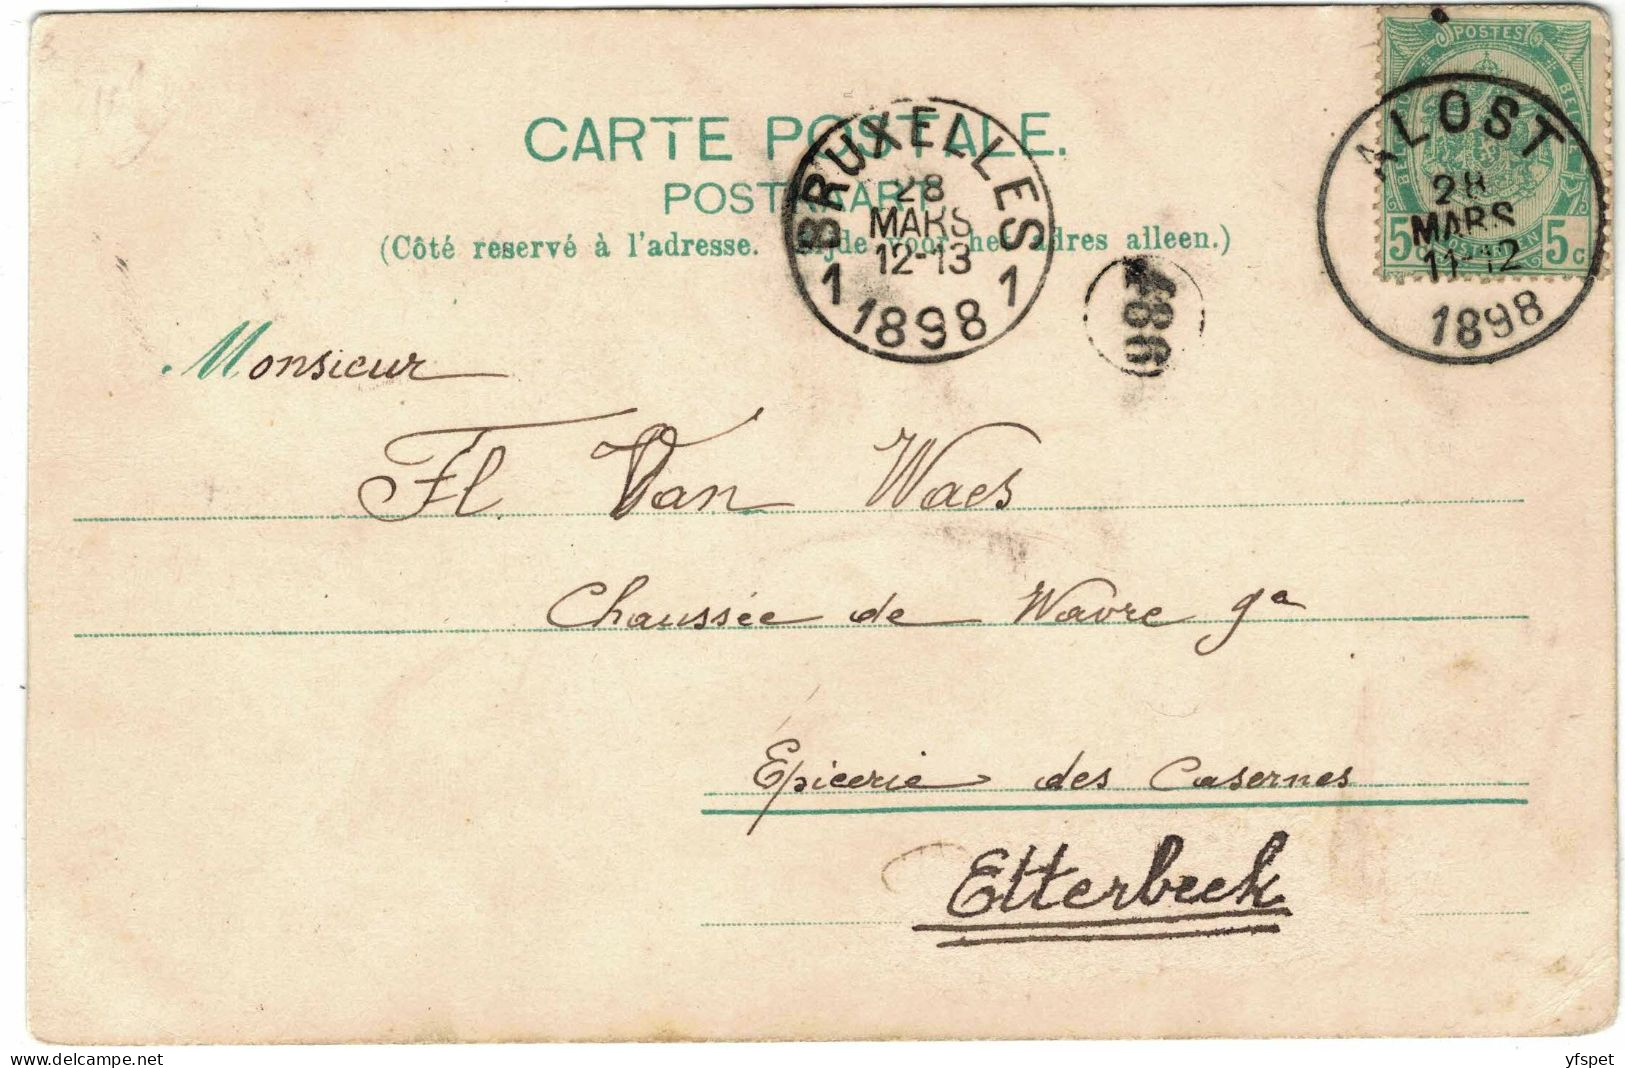 CARTE POSTALE.
POSTKAART.
(Côté reservé à l'adresse. Zijde voor het adres alleen.)
BRUXELLES
28
MARS
12-13
1 1
1898
POSTES
5c POSTERIJEN 5c
ALOST
28
MARS
11-12
1898
486
Monsieur
Fl. Van Waes
Chaussée de Wavre 9a
Epicerie des Casernes
Etterbeek
delcampe.net
yfspet